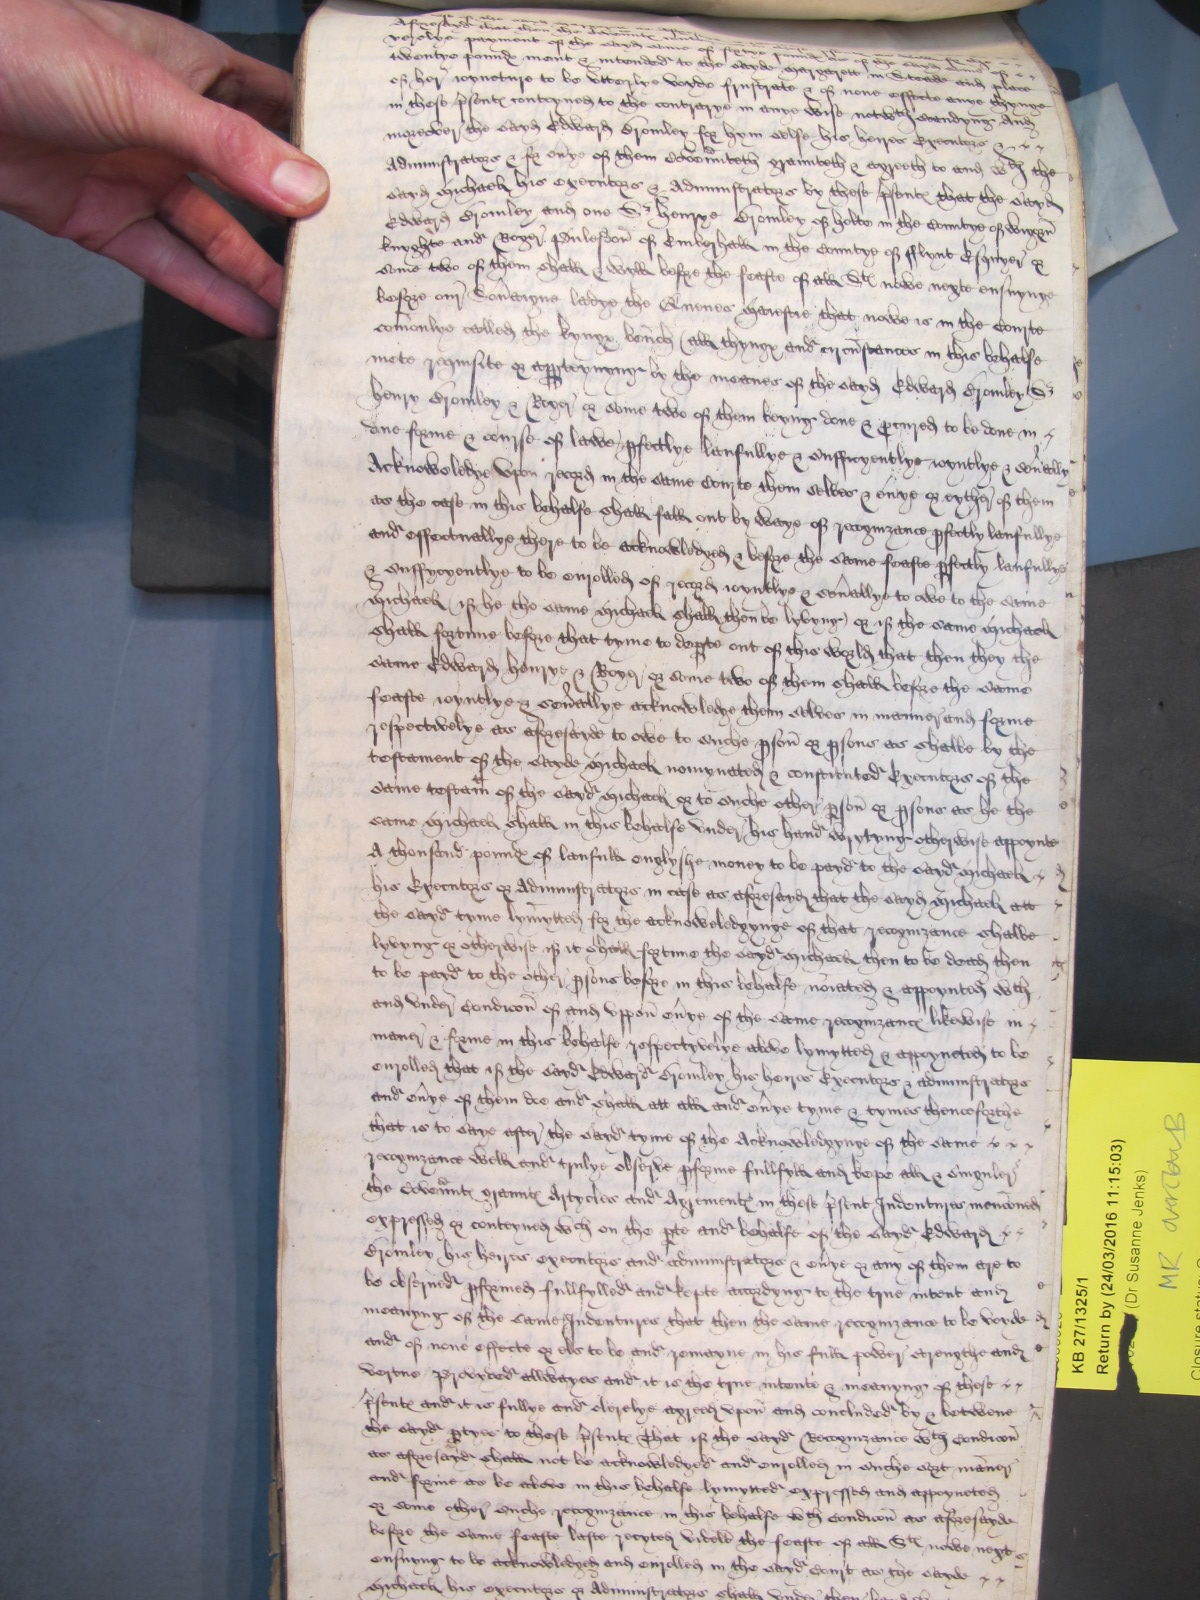 aforesayd that then the
repelye payment of the sayd some of sixtye pounde
twentye pounde ment & intended to the sayde Margarett in steade and place
of her ioyncture to be utterlye voyde frustrate & of none effecte anye thynge
in these p̄sentꝭ conteyned to the contrarye in anye wise notwthstandyng And
moreover the sayd Edward Bromley for hym selfe his heires Executors &
Administrators & for ev̄ye of them Coven̄nteth graunteth & agreeth to and wth the
sayd Michaell his executors & Administrators by these p̄sentꝭ that the sayd
Edward Bromley and one Sr henrye Bromley of holte in the Countye of
knyghte and Roger Puleston of Emberhall in the Countye of fflynt Esquyer or
some two of them shall & wyll before the feaste of all Stꝭ nowe nexte ensuynge
before our Sov̄aigne ladye the Quenes Maiestie that nowe is in the Courte
com̄onlye called the kyngꝭ bench all thyngꝭ and circūstances in this behalfe
mete requisite or appteynyng by the meanes of the sayd Edward Bromley Sr
henry Bromley & Roger or some two of them beyng done & pcured to be done in
due forme & course of lawe pfectlye laufullye & suffycyentlye ioyntlye & sev̄allye
Acknowledge upon record in the same Courte them selves & ev̄ye or eyther of them
as the case in this behalfe shall fall out by waye of recognizance pfectly laufullye
and effectuallye there to be acknowledged & before the same feaste pfectly laufullye
& suffycyentlye to be enrolled of record ioyntlye & sev̄allye to owe to the same
Michaell if he the same Michaell shall then be lyvyng or if the same Michaell
shall fortune before that tyme to depte out of this world that then they the
same Edward henrye & Roger or some two of them shall before the same
feaste ioyntlye & sev̄allye acknowledge them selves in manner and forme
respectivelye as aforesayde to owe to suche pson or psons as shalbe by the
testament of the sayde Michaell nomynated & constituted Executors of the
same testamt of the sayd Michaell or to suche other pson or psons as he the
same Michaell shall in this behalfe under his hand wrytyng otherwise appoynte
A thousand poundꝭ of laufull englyshe money to be payd to the sayd Michaell
his Executors or Administrators in case as aforesayd that the sayd Michaell att
the sayd tyme lymytted for the acknowledgynge of that recognizance shalbe
lyvyng or otherwise if it shall fortune the sayd Michaell then to be dead then
to be payd to the other psons before in this behalfe no̅i̅ated & appoynted wth
and under Condic̄on of and uppon ev̄ye of the same recognizancꝭ likewise in
maner & forme in this behalfe respectyvelye above lymytted & appoynted to be
enrolled that if the sayd Edward Bromley his heires Executors & administrators
and ev̄ye of them doe and shall att all and ev̄ye tyme & tymes thenceforthe
that is to saye after the sayd tyme of the Acknowledgynge of the same
recognizance well and trulye observe pforme fullfyll and kepe all & singuler
the Coven̄ntꝭ grauntꝭ Artycles and Agrementꝭ in these p̄sent Indentures menc̄oned
expressed or conteyned wch on the pte and behalfe of the sayd Edward
Bromley his heires executors and administrators & ev̄ye or any of them are to
be observed pformed fullfylled and kepte accordyng to the true intent and
meanyng of the same Indentures that then the same recognizance to be voyde
and of none effecte or els to be and remayne in his full power strengthe and
vertue Provyded allwayes and it is the true intente & meanyng of these
p̄sentꝭ and it is fullye and clerelye agreed upon and concluded by & betwene
the sayd ptyes to these p̄sentꝭ That if the sayd Recognizance wth Condic̄on
as aforesayd shall not be acknowledged and enrolled in suche sort maner
and forme as be above in this behalfe lymytted expressed and appoynted
or some other suche recognizance in this behalfe wth Condic̄on as aforesayde
before the same feaste laste recyted videlt the feaste of all Stꝭ nowe next
ensuyng to be acknowledged and enrolled in the sayd Court as the sayde
Michaell his executors or Administrators shall under
KB 27/1325/1
Return by (24/03/2016 11:15:03)
(Dr Susanne Jenks)
MR
Closure status